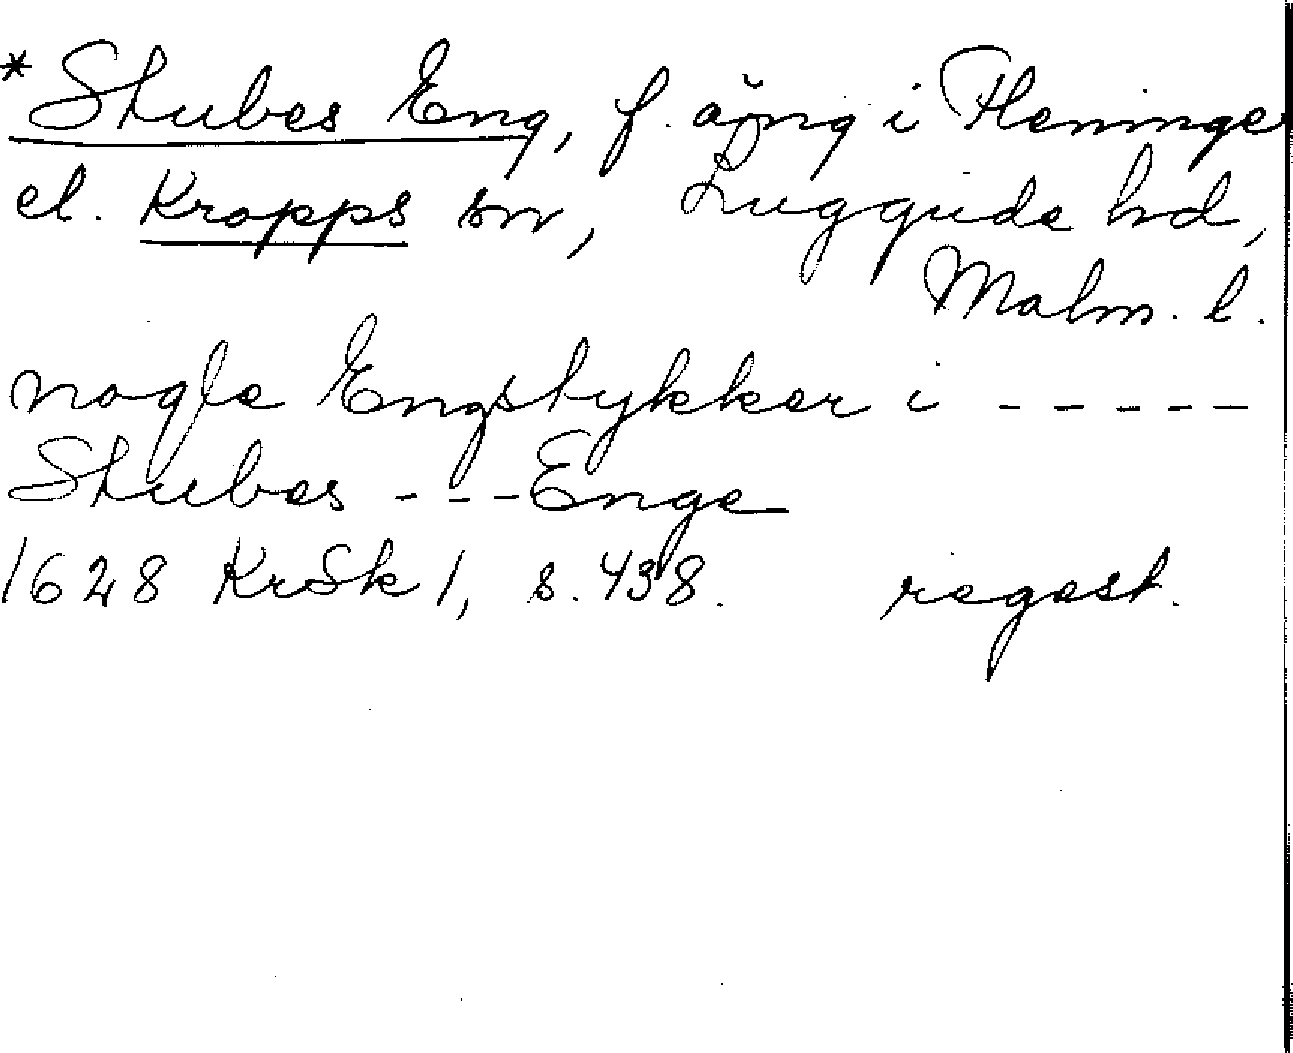 *Stubes Eng, f. äng i Fleninge
el. Kropps sn, Luggude hd,
Malm. l.
nogle Engstykker i -----
Stubes --- Enge
1628 KrSk 1, s. 438. regest.